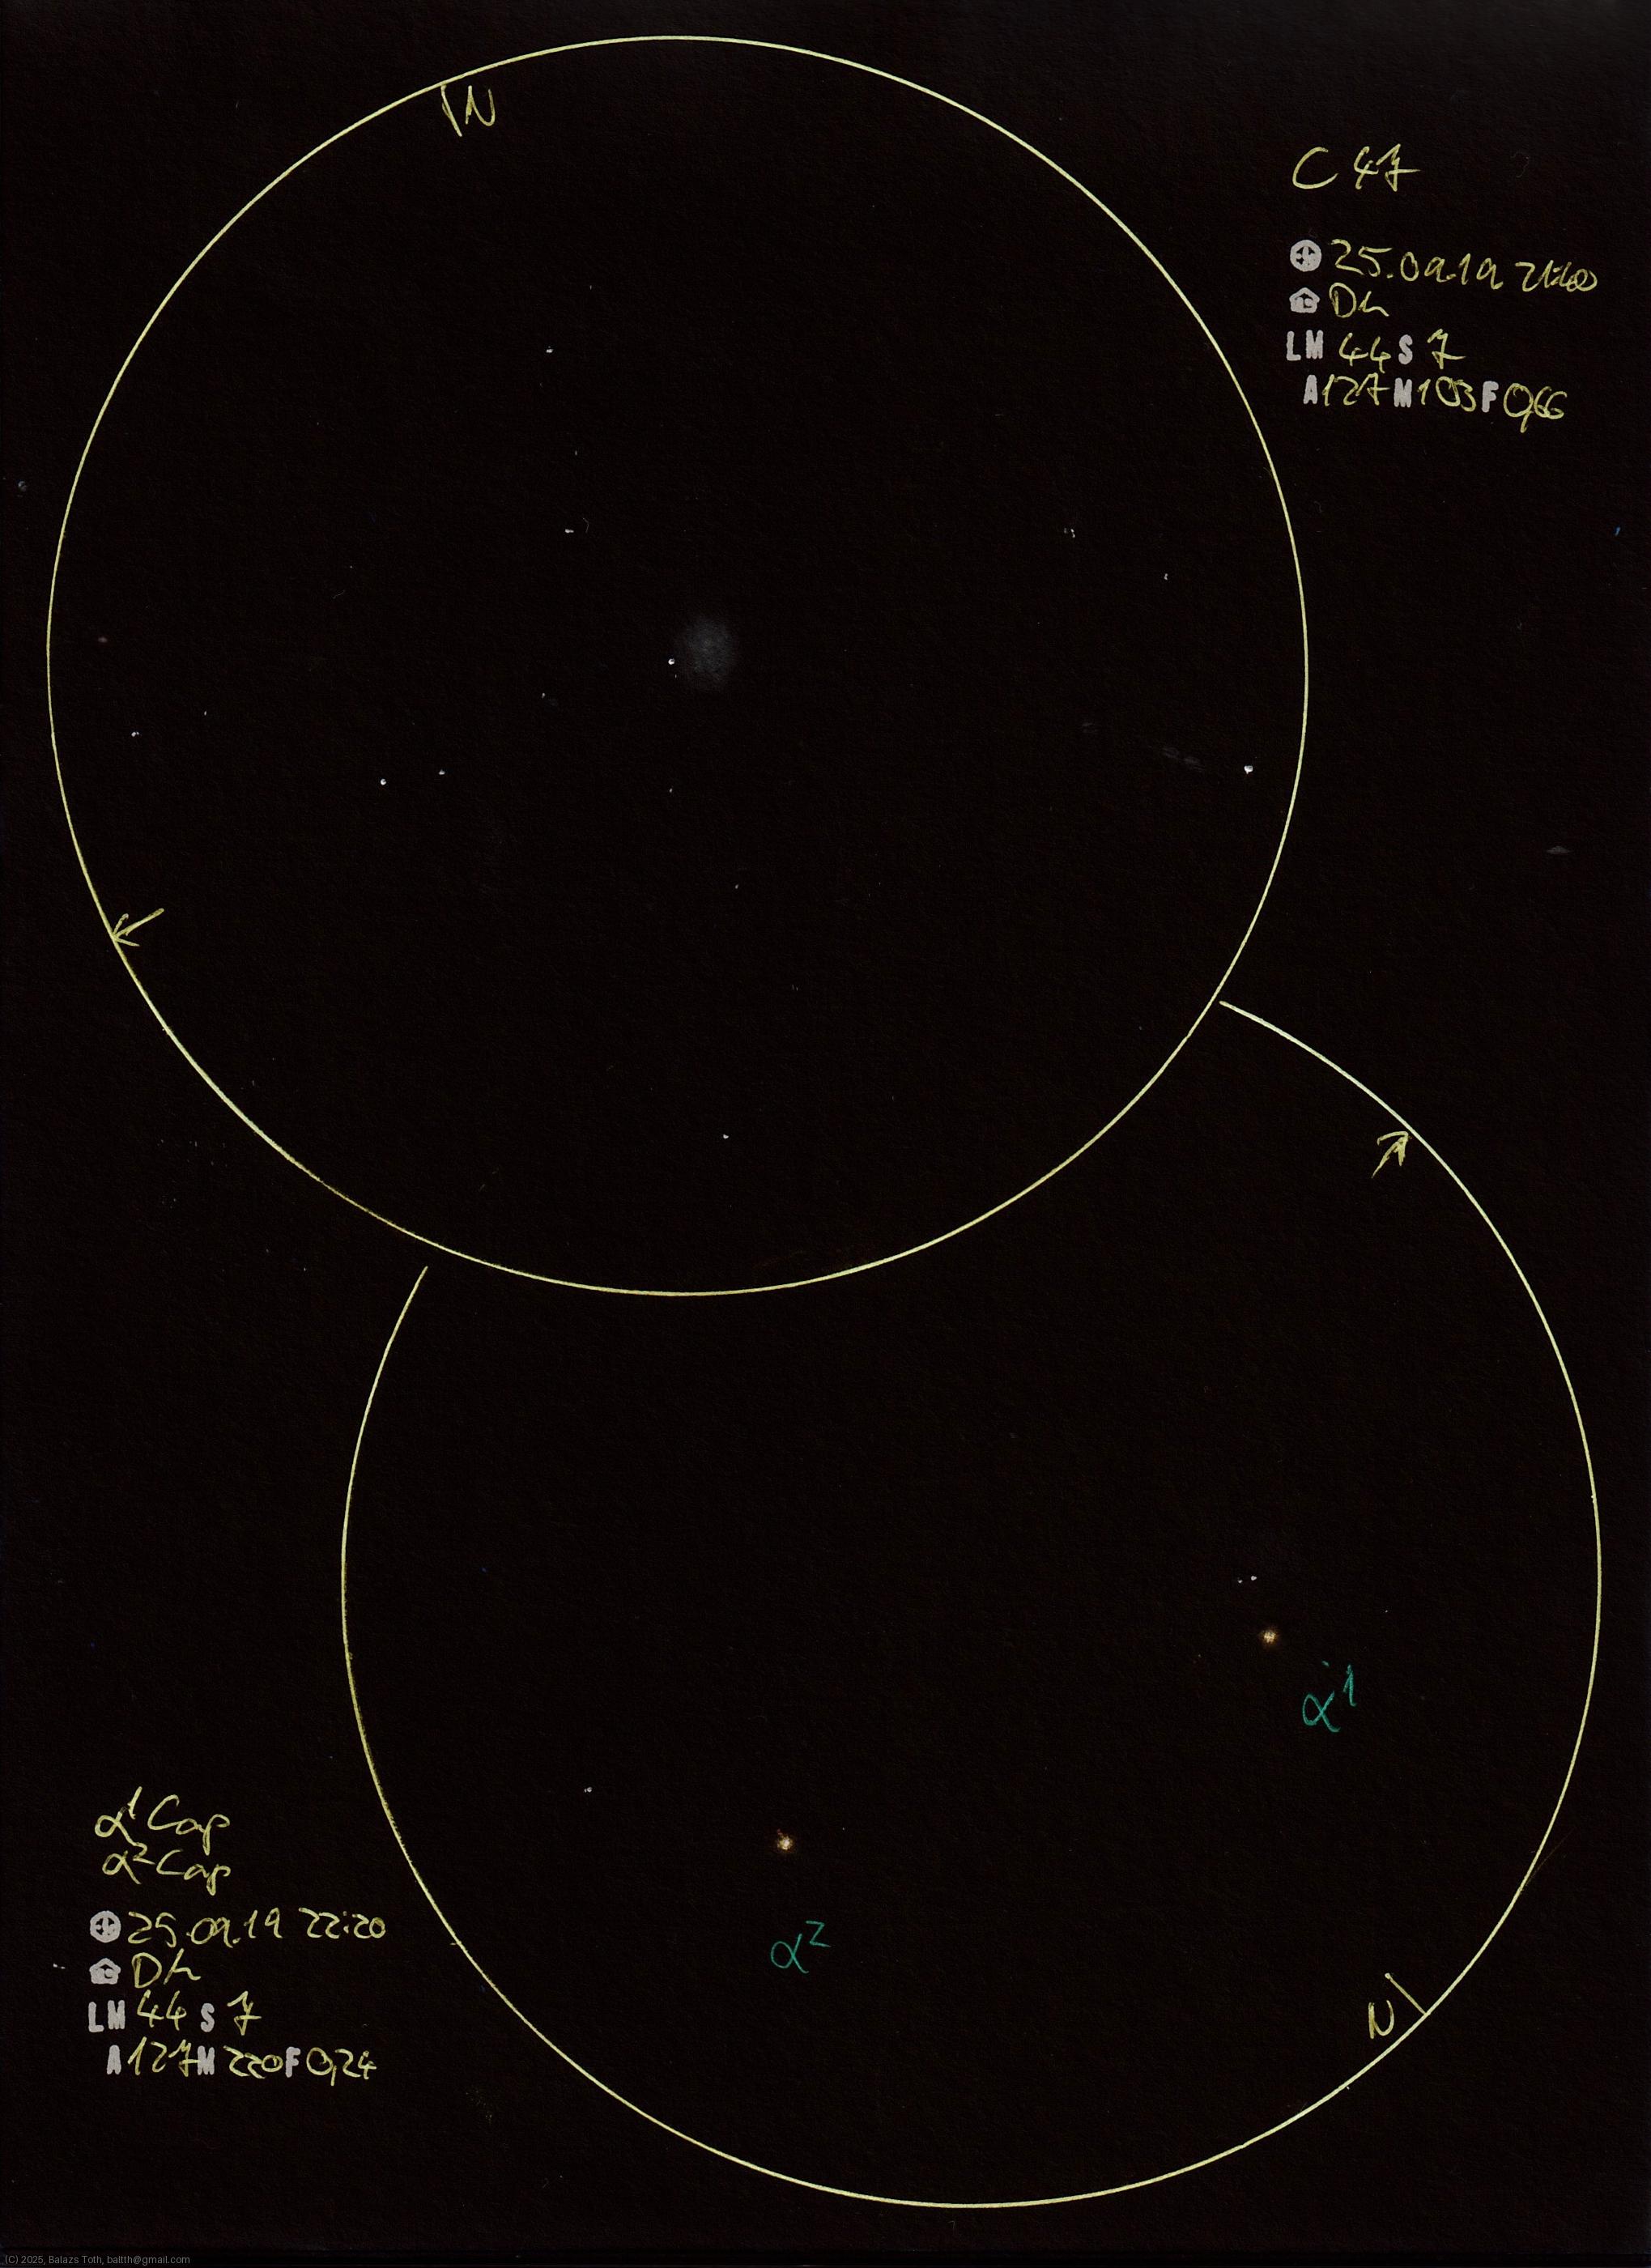 N
C 47
25.09.19 21:40
Dh
LM 44 S 7
A 127 M 103 F 0,66
α1
α2
N
α1 Cap
α2 Cap
25.09.19 22:20
Dh
LM 44 S 7
A 127 M 220 F 0,24
(C) 2025, Balazs Toth, baltth@gmail.com